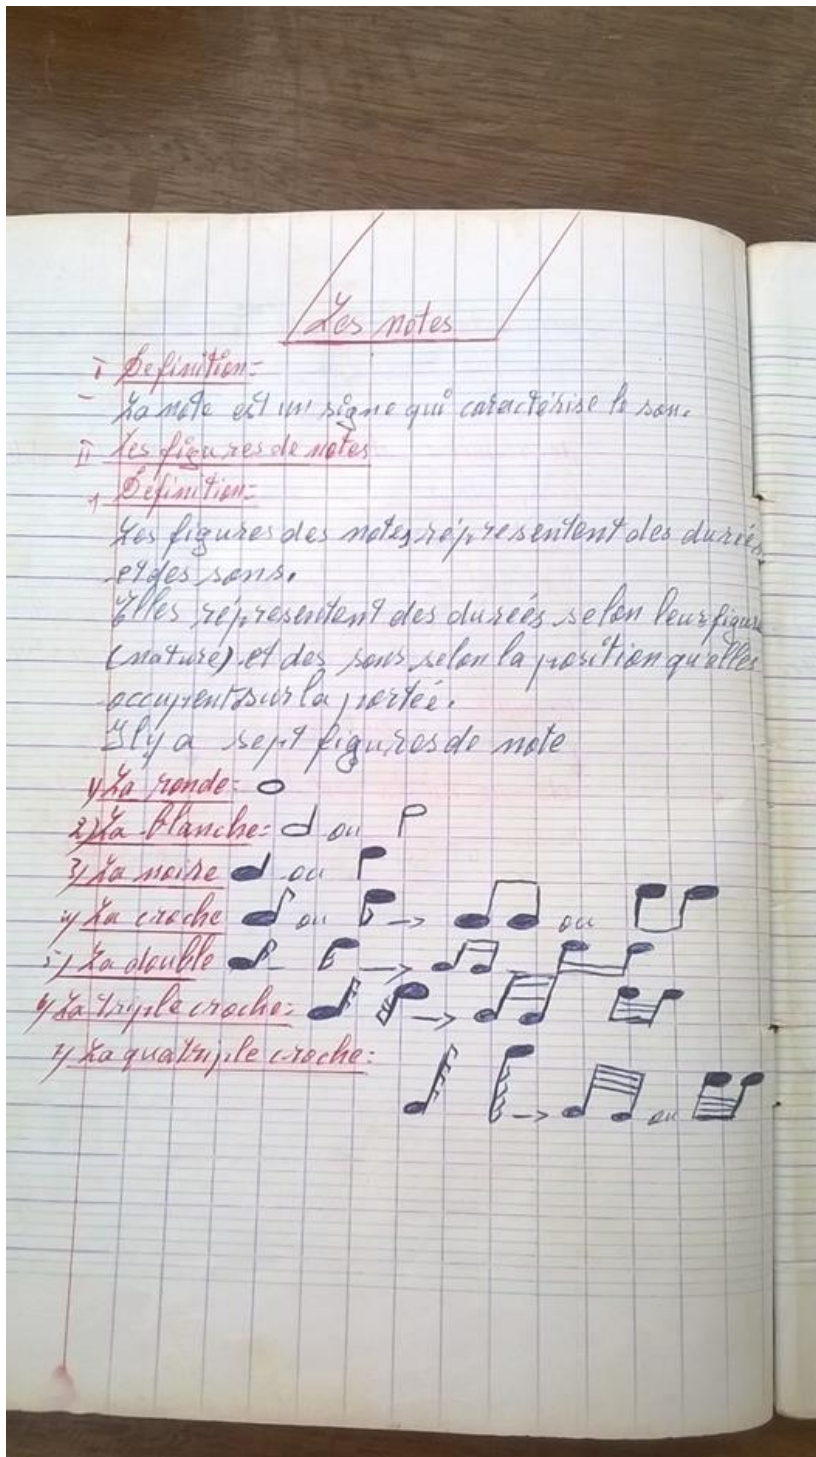 Les notes
I Definition:
La note est un signe qui caractérise le son.
II Les figures de notes
1 Définition:
Les figures des notes réprésentent des durées
et des sons.
Elles réprésentent des durées selon leur figure
(nature) et des sons selon la position qu'elles
occupent sur la portée.
Il y a sept figures de note
1) La ronde:
2) La blanche: ou
3) La noire ou
4) La croche ou → ou
5) La double →
6) La triple croche: →
7) La quatriple croche:
→ ou